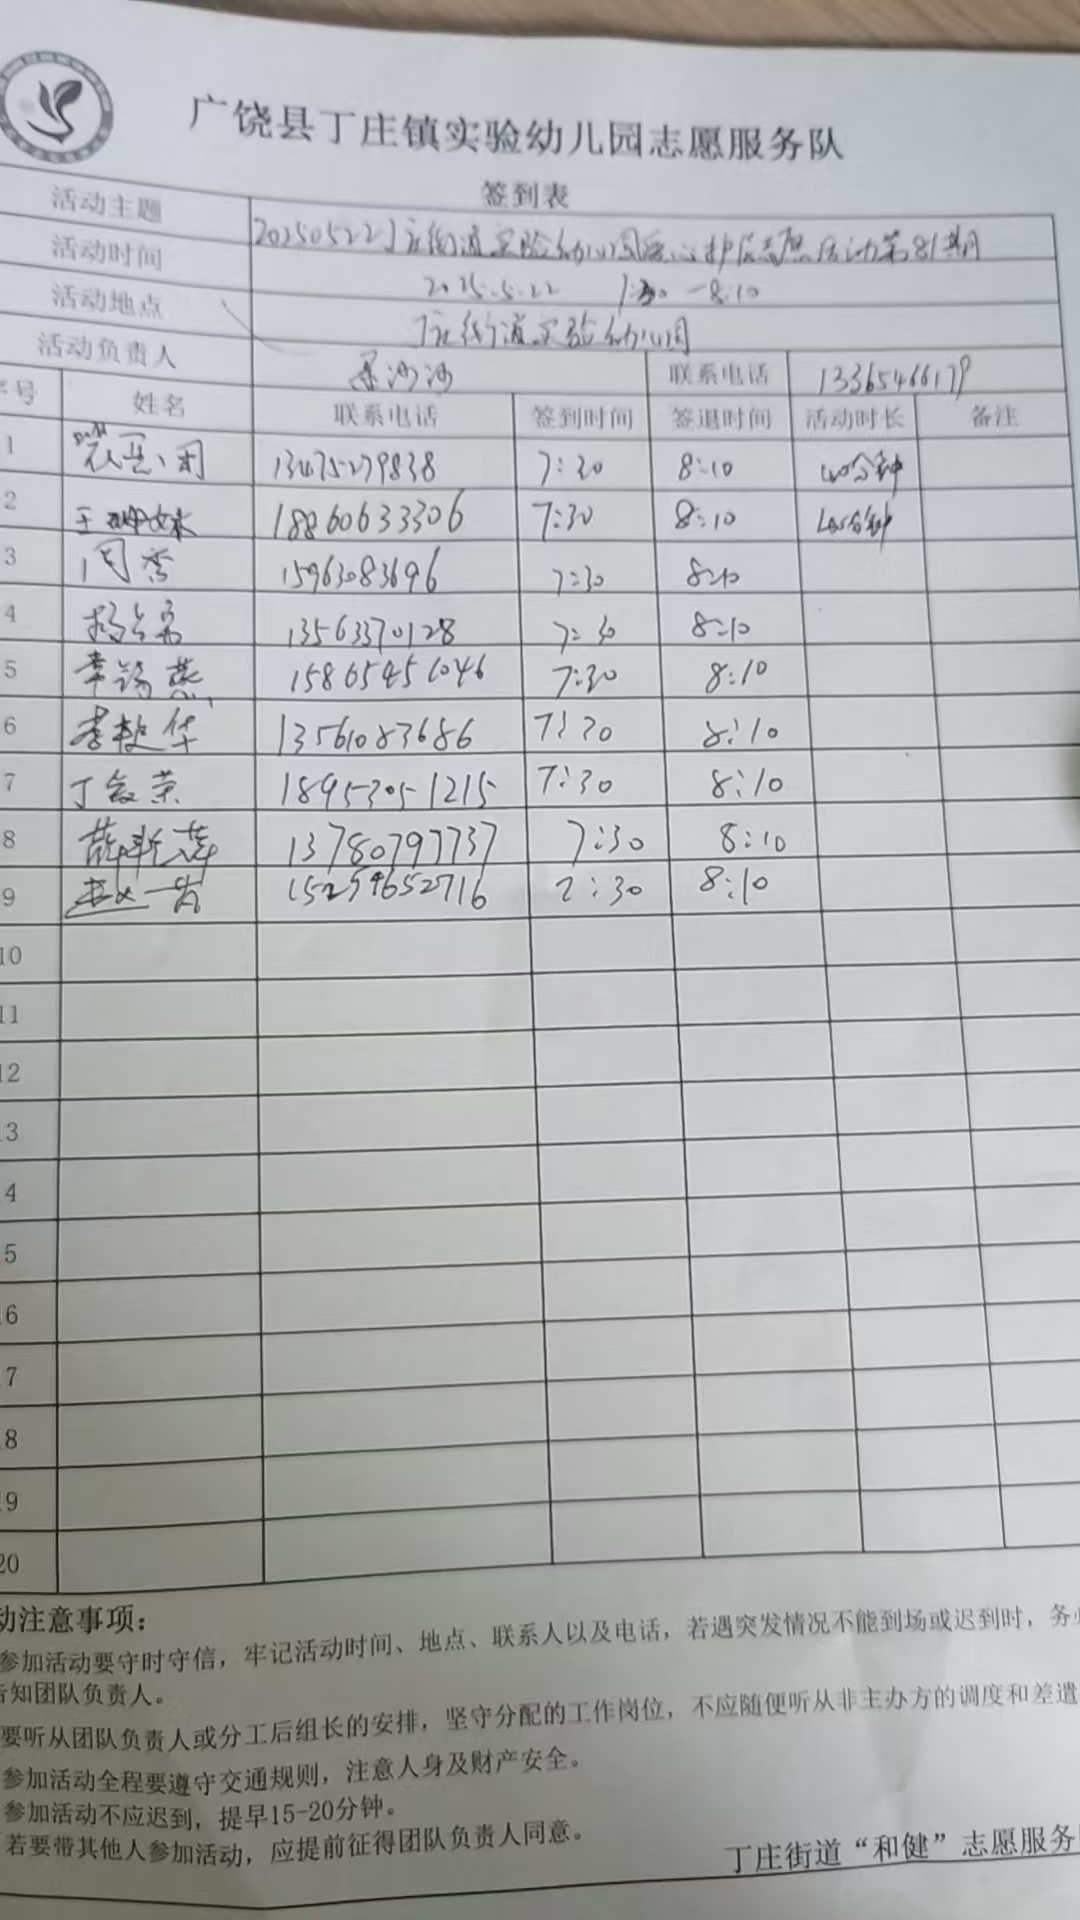 广饶县丁庄镇实验幼儿园志愿服务队
签到表
活动主题 20250522丁庄街道实验幼儿园爱心护店志愿活动第81期
活动时间 2025.5.22 7:30-8:10
活动地点 丁庄街道实验幼儿园
活动负责人 沙沙 联系电话 13365466179
序号 姓名 联系电话 签到时间 签退时间 活动时长 备注
1 13475279838 7:30 8:10 40分钟
2 王 18860633306 7:30 8:10 40分钟
3 周香 15963083696 7:30 8:10
4 13563370128 7:30 8:10
5 李 燕 15865451046 7:30 8:10
6 李 华 13561083686 7:30 8:10
7 丁 荣 18953051215 7:30 8:10
8 薛 莲 13780797737 7:30 8:10
9 赵一 15259652716 7:30 8:10
10
11
12
13
14
15
16
17
18
19
20
动注意事项：
参加活动要守时守信，牢记活动时间、地点、联系人以及电话，若遇突发情况不能到场或迟到时，务必
告知团队负责人。
要听从团队负责人或分工后组长的安排，坚守分配的工作岗位，不应随便听从非主办方的调度和差遣
参加活动全程要遵守交通规则，注意人身及财产安全。
参加活动不应迟到，提早15-20分钟。
若要带其他人参加活动，应提前征得团队负责人同意。
丁庄街道“和健”志愿服务